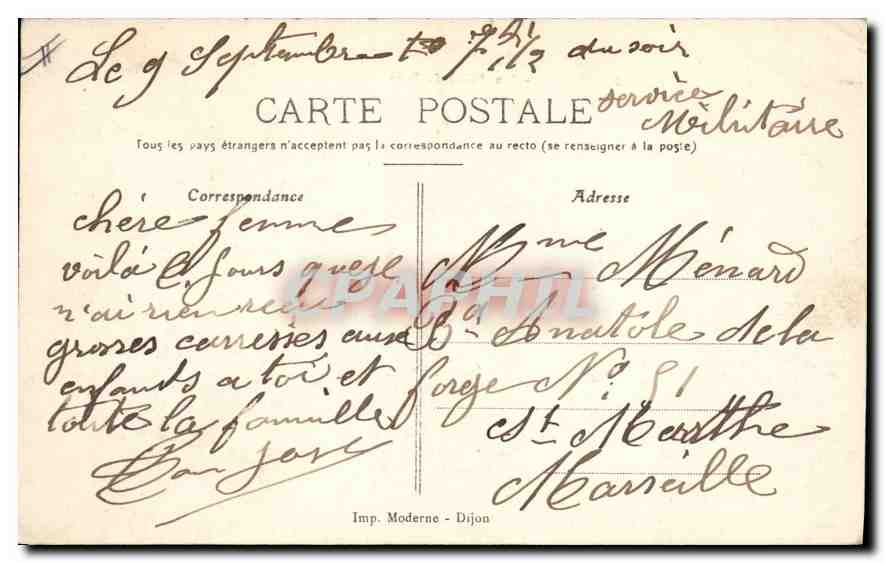 Le 9 Septembre 7 h 1/2 du soir
CARTE POSTALE
service
Militaire
Tous les pays étrangers n'acceptent pas la correspondance au recto (se renseigner à la poste)
Correspondance
chère femme
voilà jours que je
n'ai rien reçu
grosses carresses aux
enfants a toi et
toute la famille
Adresse
Mme Ménard
Bd Anatole de la
forge No 51
St Marthe
Marseille
CPAPHIL
Imp. Moderne - Dijon